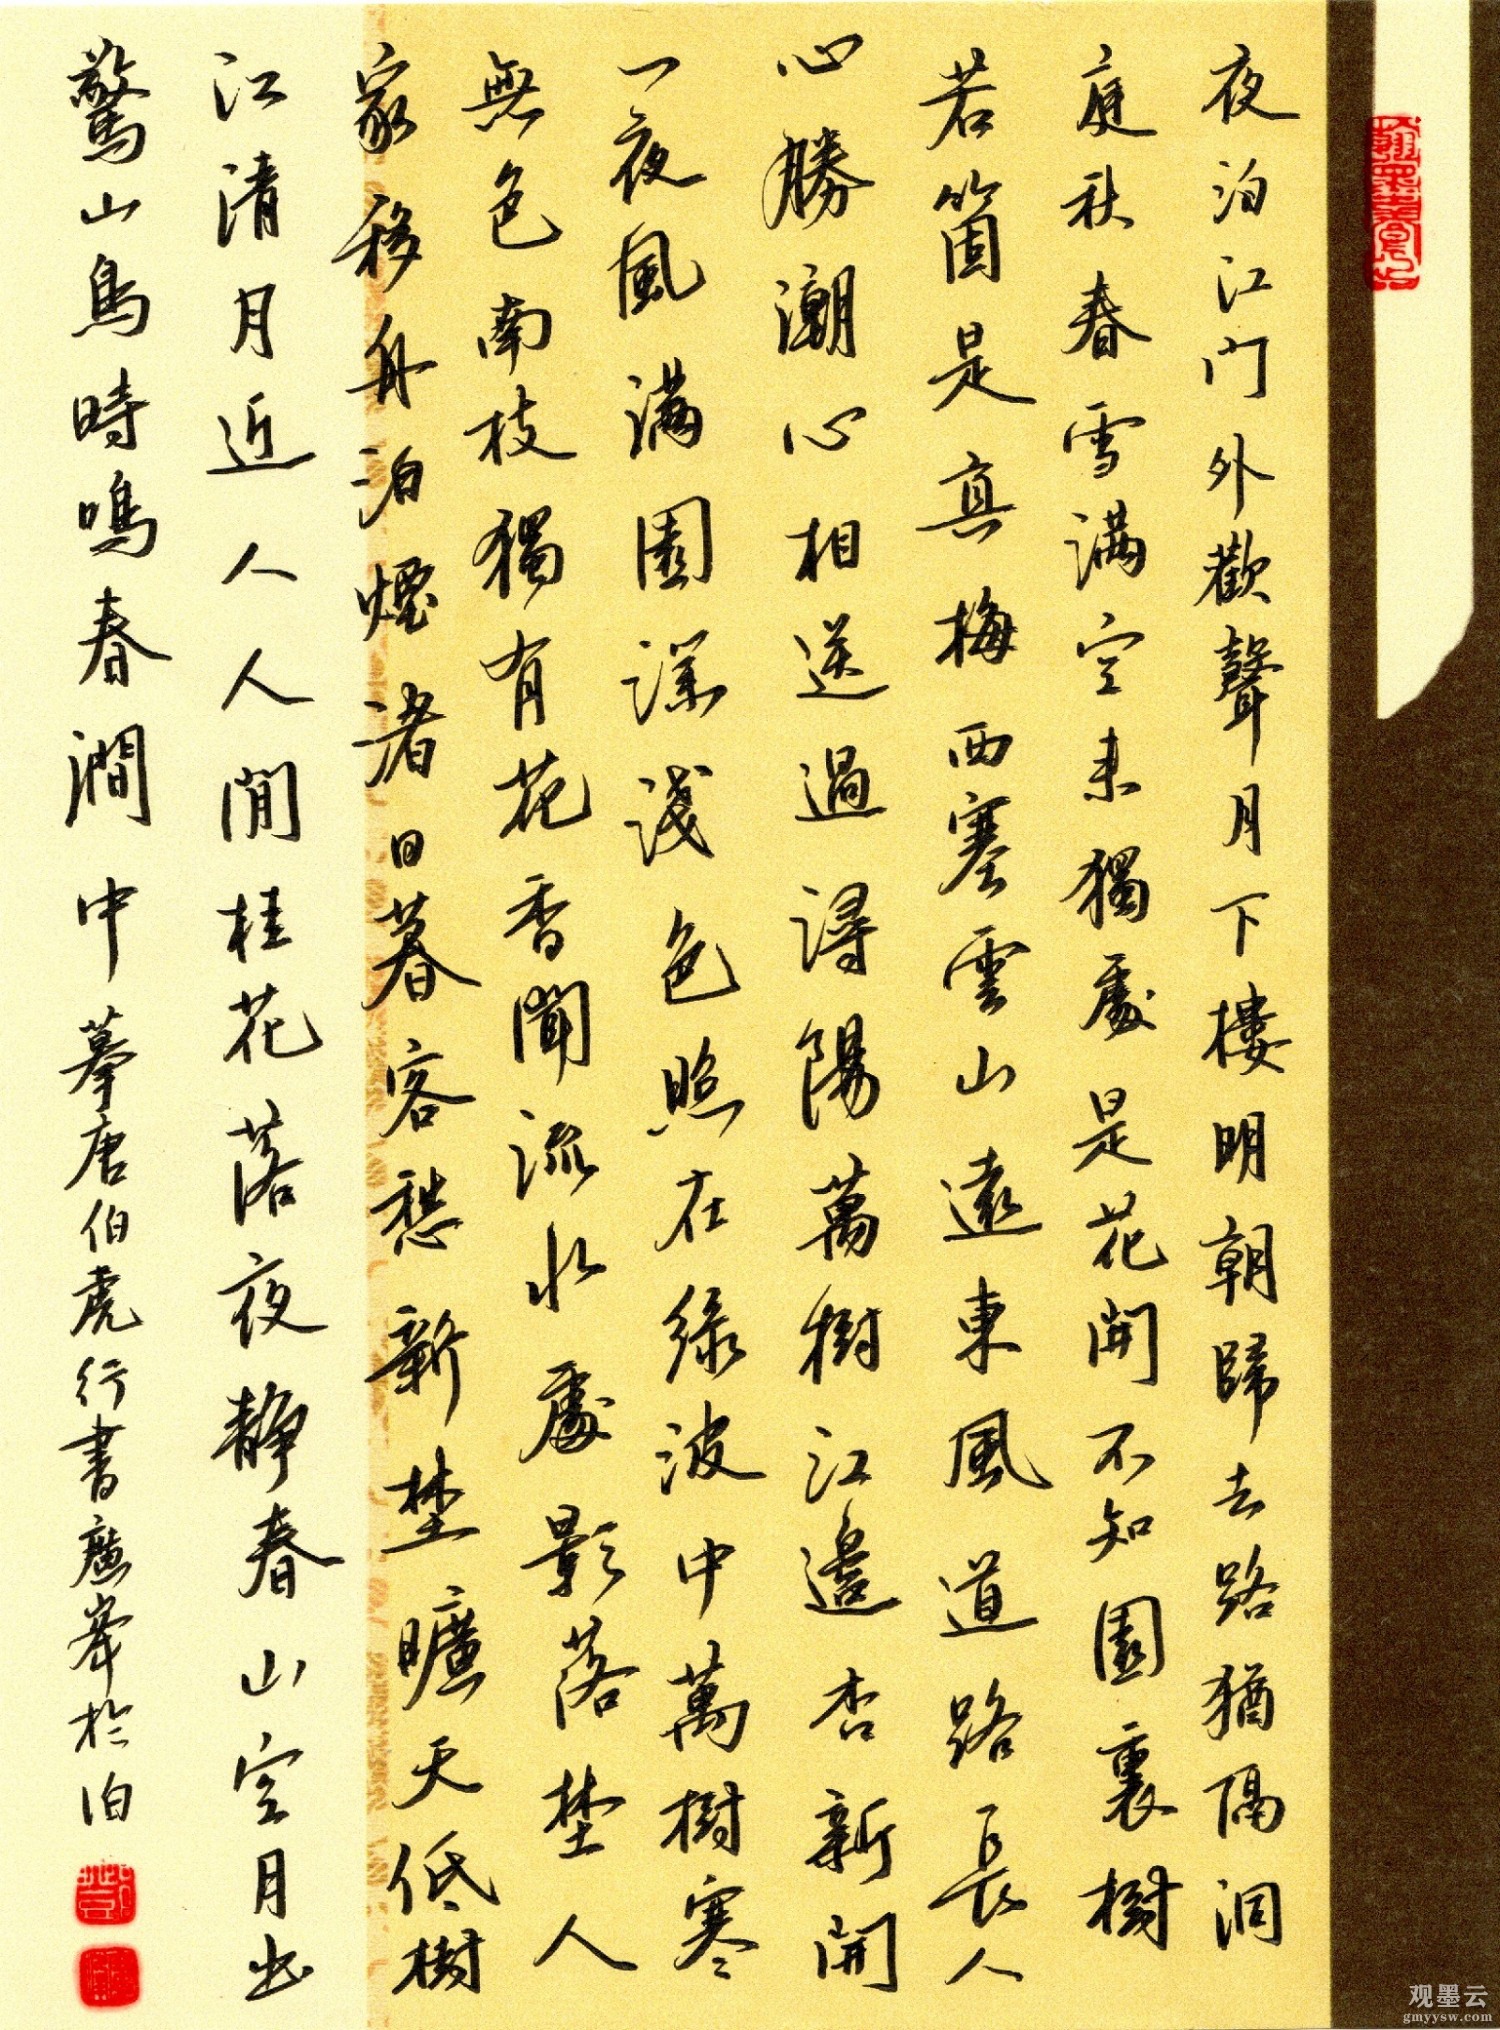 夜泊江门外歡聲月下樓明朝歸去路猶隔洞
庭秋春雪滿空来獨處是花開不知園裏樹
若箇是真梅西塞雲山遠東風道路長人
心勝潮心相送過潯陽萬樹江邊杏新開
一夜風滿園深淺色照在綠波中萬樹寒
無色南枝獨有花香聞流水處影落埜人
家移舟泊煙渚日暮客愁新埜曠天低樹
江清月近人人閒桂花落夜靜春山空月出
驚山鳥時鳴春澗中摹唐伯虎行書應峯於泊
观墨云
gmyysw.com